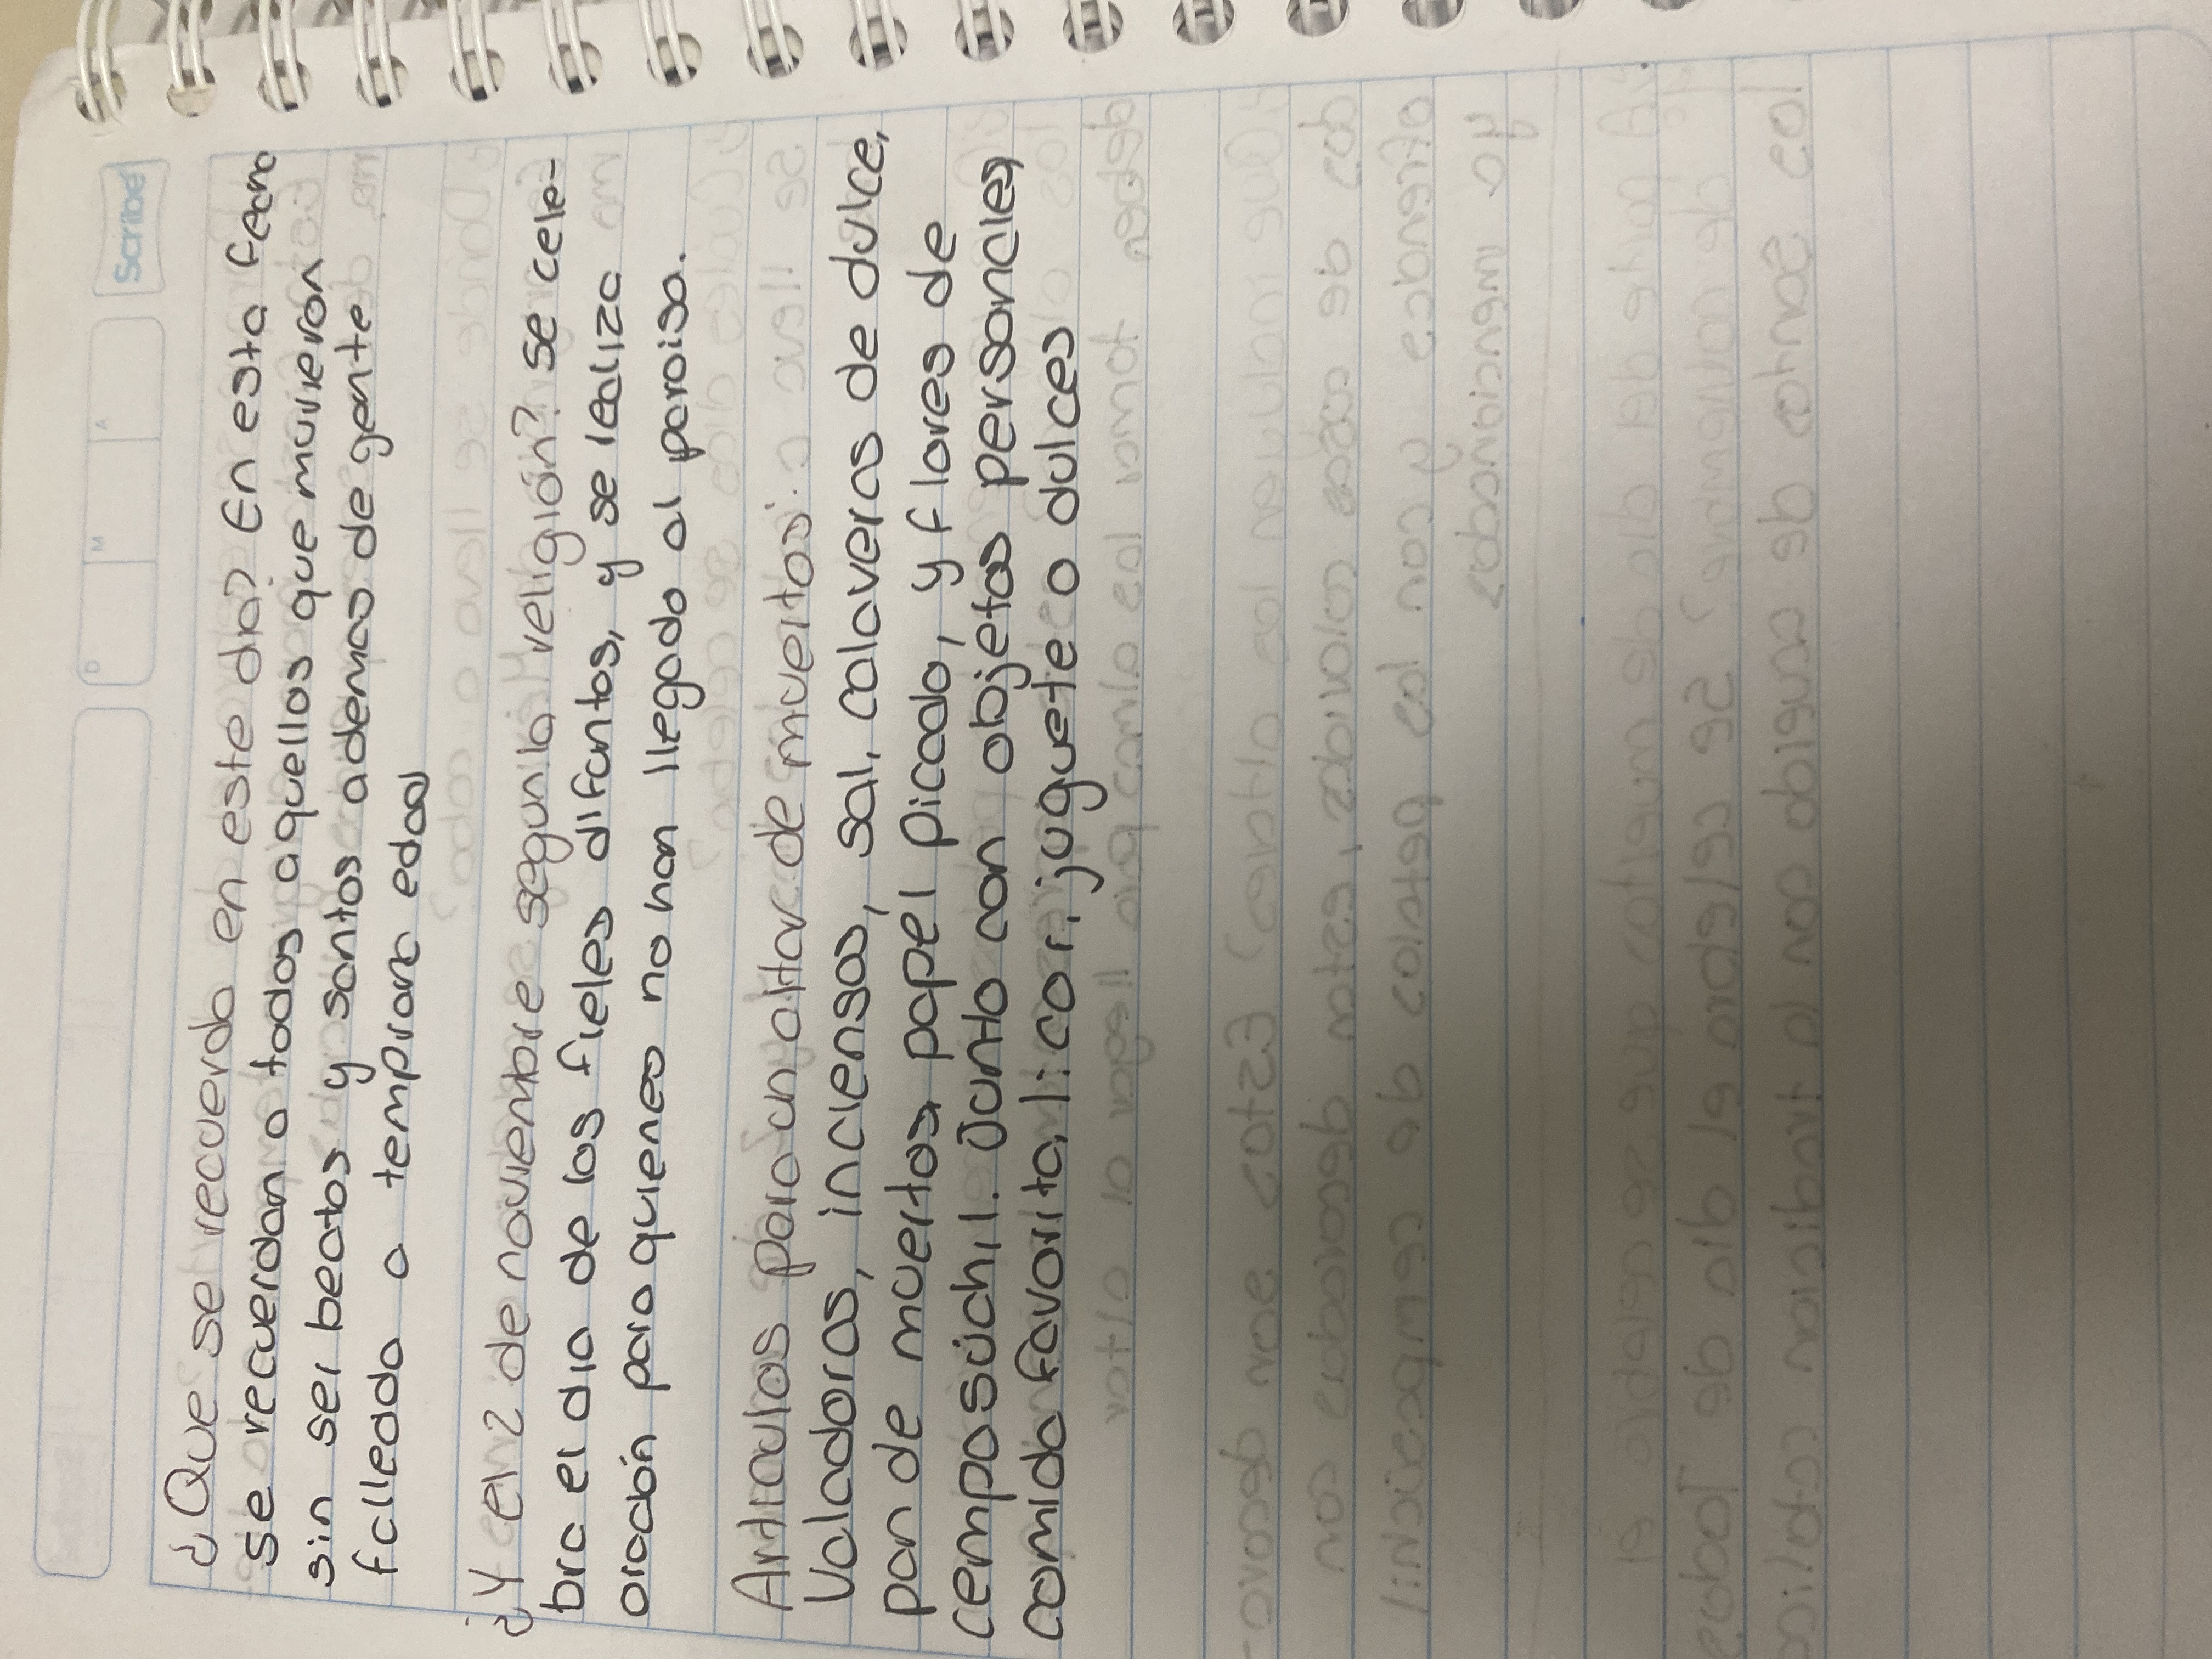 Scribe
D M A
¿Que se recuerda en este dia? En esta fecha
se recuerdan a todos aquellos que murieron
sin ser beatos y santos ademas de gente
falleada a temprana edad
¿Y en 2 de noviembre segun la religión? se cele-
bra el dia de los fieles difuntos, y se realiza
oración para quienes no han llegado al paraiso.
Articulos para un altar de muertos:
Veladoras, inciensos, sal, calaveras de dulce,
pan de muertos papel picado, y flores de
cemposúchil. Junto con objetos personales
comida favorita, licor, juguete o dulces